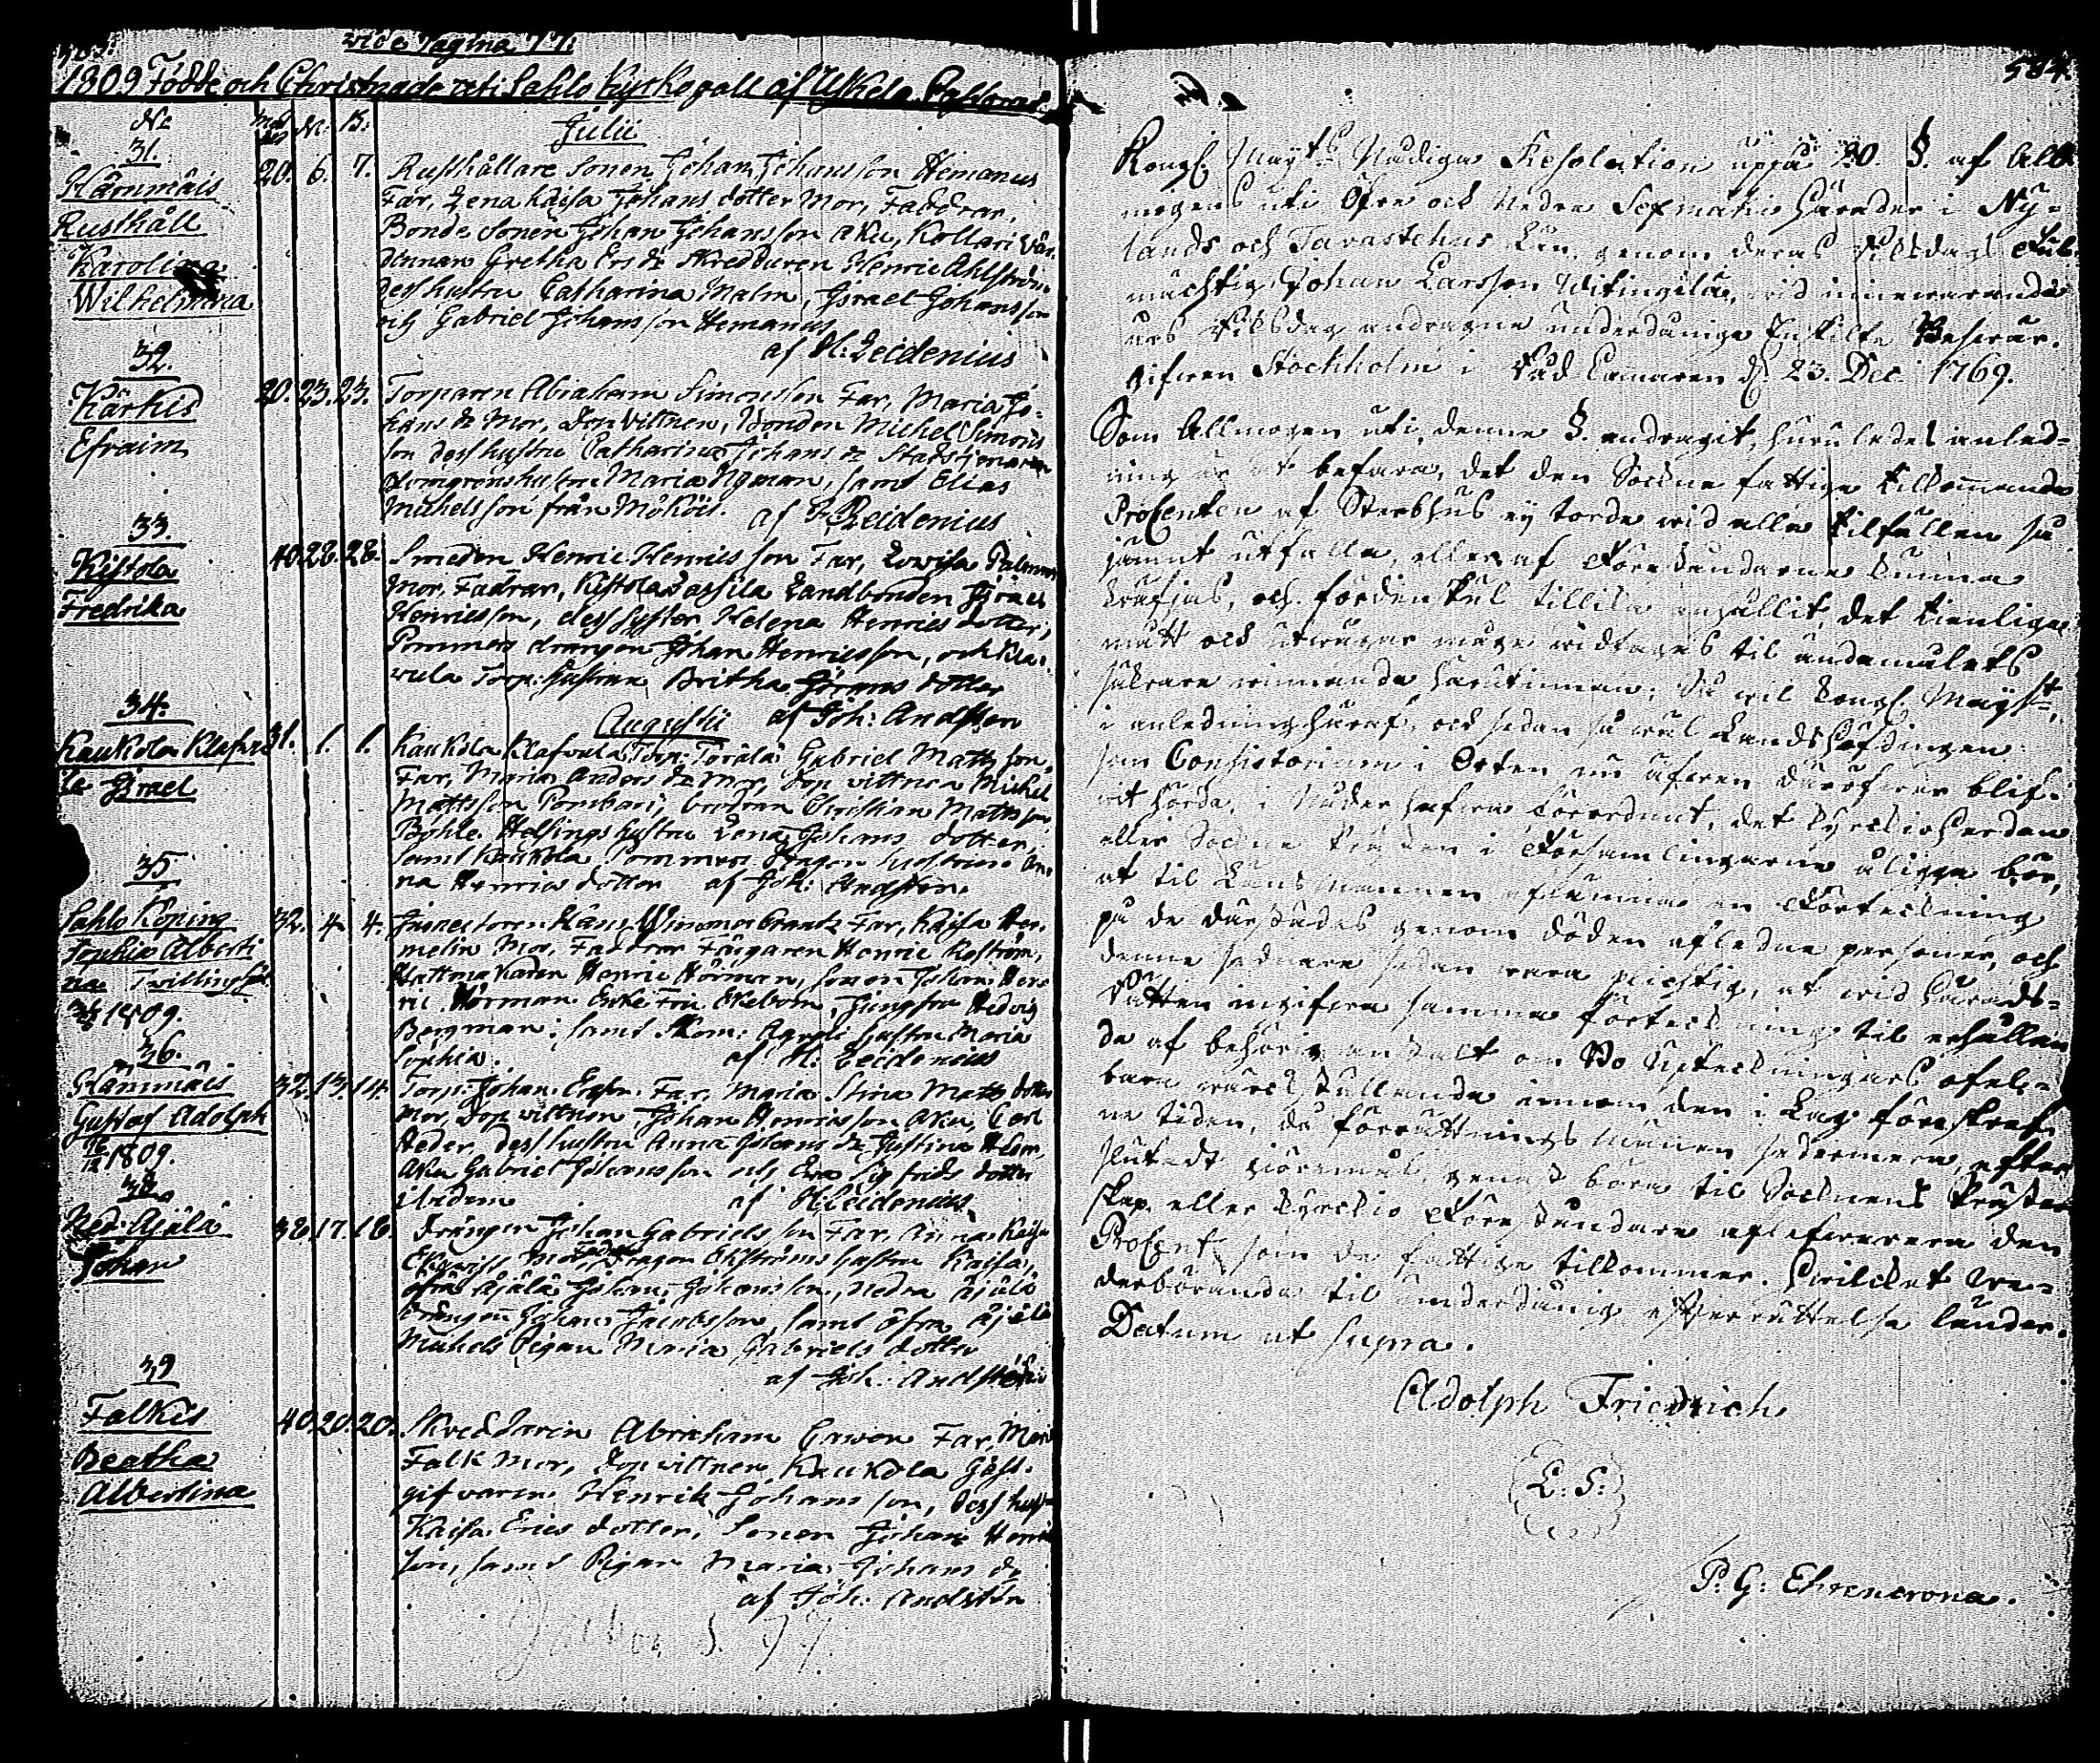 vide Pagina 77.
1809 Födde och Christnade uti Sahlo Kyrkogäll af Uskela Pastorat
No
M. B.
Julii
31.
Hämmäis
Rusthåll
Karolina
Wilhelmina
20. 6. 7.
Rusthållare Sonen Johan Johansson Hemanus
Far, Lena Kaisa Johans dotter Mor, Faddrar,
Bonde Sonen Johan Johansson Aku, Kollari
Gretha Ers dr Skreddaren Henric Ahlström
dess hustru Catharina Malm, Israel Johansson
och Gabriel Johansson Hemanus
af H: Zeidenius
32.
Kärkis
Efraim
20. 23. 23.
Torparen Abraham Simonsson Far, Maria Jo-
hans dr Mor, Dopvittnen, Bonden Michel Simons
son dess hustru Catharina Johans dr Stadstjenaren
hustru Maria Nyman, samt Elias
Michelsson från
af H: Zeidenius
33.
Kistola
Fredrika
40. 28. 28.
Smeden Henric Henricsson Far, Lovisa Palmros
Mor, Fadrar, Kistola Landbonden
Henricsson, dess syster Helena Henrics dotter,
drängen Johan Henricsson, och
Torp: hustrun Britha Jörans dotter
af Joh: Andsten
Augustii
34.
Kaukola Klafva
la Israel
31. 1. 1.
Kaukola Klafvala Torp: Gabriel Matts son,
Far, Maria Anders dr Mor, Dop vittnen Michel
Mattsson Christian Mattsson
Helsings hustru Lena Johans dotter,
samt Kaukola hustrun An-
na Henrics dotter af Joh: Andsten.
35
Sahlo Köping
Sophia Alberti
na Tvillings
1809.
32. 4. 4.
Far, Kaisa Her-
melin Mor, Faddrar Färgaren Henric
Hattmakaren Henric Hörman, sonen Johan Hen
ric Hörman Enke Fru Ekebom, Jungfru Hedvig
Bergman; samt Skom: hustru Maria
Sophia. af H: Zeidenius
36.
Hämmäis
Gustaf Adolph
1809.
32. 13. 14.
Torp: Johan Far, Maria Stina Matts dotter
Mor, Dop vittnen, Johan Henricsson Aku, Carl
Heder, dess hustru Anna Johans dr
Aku Gabriel Johansson och Eva Sigfrids dotter
af H: Zeidenius
38.
Ned: Äjälä
Johan
38. 17. 18.
Drängen Johan Gabriels son Far, Anna Kaisa
Mor, Ekströms hustru Kaisa,
öfra Äjälä Johan Johansson, Nedra Äjälä
drängen Johan Jacobsson, samt öfra Äjälä
Michels Pigan Maria Gabriels dotter
af Joh: Andsten
39
Falkis
Beatha
Albertina
40. 20. 20.
Skreddaren Abraham Far, Maria
Falk Mor, Dop vittnen, Kaukola Gäst-
gifvaren Henrik Johansson, dess hust
Kaisa Erics dotter, Sonen Johan Henric
son, samt Pigan Maria Johans dr
af Joh: Andsten
584.
Kongl. Mayts Nådiga Resolution uppå 20. §. af All-
mogens uti Öfre och Nedre Sexmäki Härader i Ny-
lands och Tavastehus Län, genom deras Riksdags Full-
mäktig Johan Larsson Witingilä, wid innewarande
års Riksdag andragne underdånige Enskilte Beswär.
Gifwen Stockholm i Råd Cammaren d. 23. Dec. 1769.
Som Allmogen uti denne §. andragit, huruledes anled-
ning är at befara, det den Sockne fattige tillkommande
Procenten af Sterbhus ej torde wid alla tilfällen så
jämnt utfalla, eller af Föreståndarne kunna
krafjas, och fördenskul tillika anhållit, det tienlige
mått och utwägar måge widtagas til ändamålets
säkrare winnande härutinnan; Så wil Kongl. Mayst,
i anledning häraf, och sedan så wäl Landshöfdingen
som Consistorium i Orten nu äfwen däröfwer blif-
wit hörde, i Nåder hafwa förordnat, det Kyrkioherden
eller Sockne Prästen i Församlingarne åligga bör,
at til Länsmannen aflämna en Förteckning
på de därstädes genom döden afledne personer, och
denne sednare sedan wara plicktig, at wid Härads-
Rätten ingifwa samma förteckning til erhållan
de af behörig anstalt om Bo Upteckningars ofel-
bara wärkställande innom den i Lag föreskref
ne tiden, då förrättnings männen sedermera, efter
slutadt giöromål, genast böra til Socknens Präster
skap eller Kyrkio Föreståndare aflefwerera den
Procent, som de fattige tillkommer. Hwilcket we-
derbörande til underdånig efterrättelse länder.
Datum ut supra.
Adolph Friedrich
L. S.
P. G: Ehrencrona.